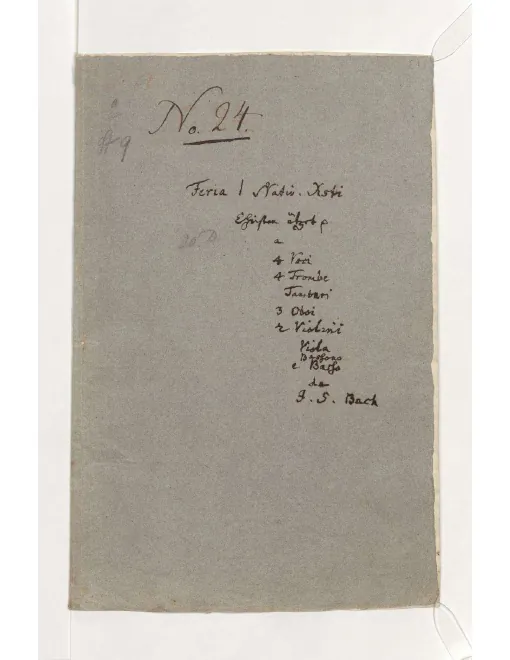 No. 24.
9
Feria 1 Nativ. Xsti
Christen ätzet
a
4 Voci
4 Trombe
Tamburi
3 Oboi
2 Violini
Viola
Bassono
e Basso
da
J. S. Bach